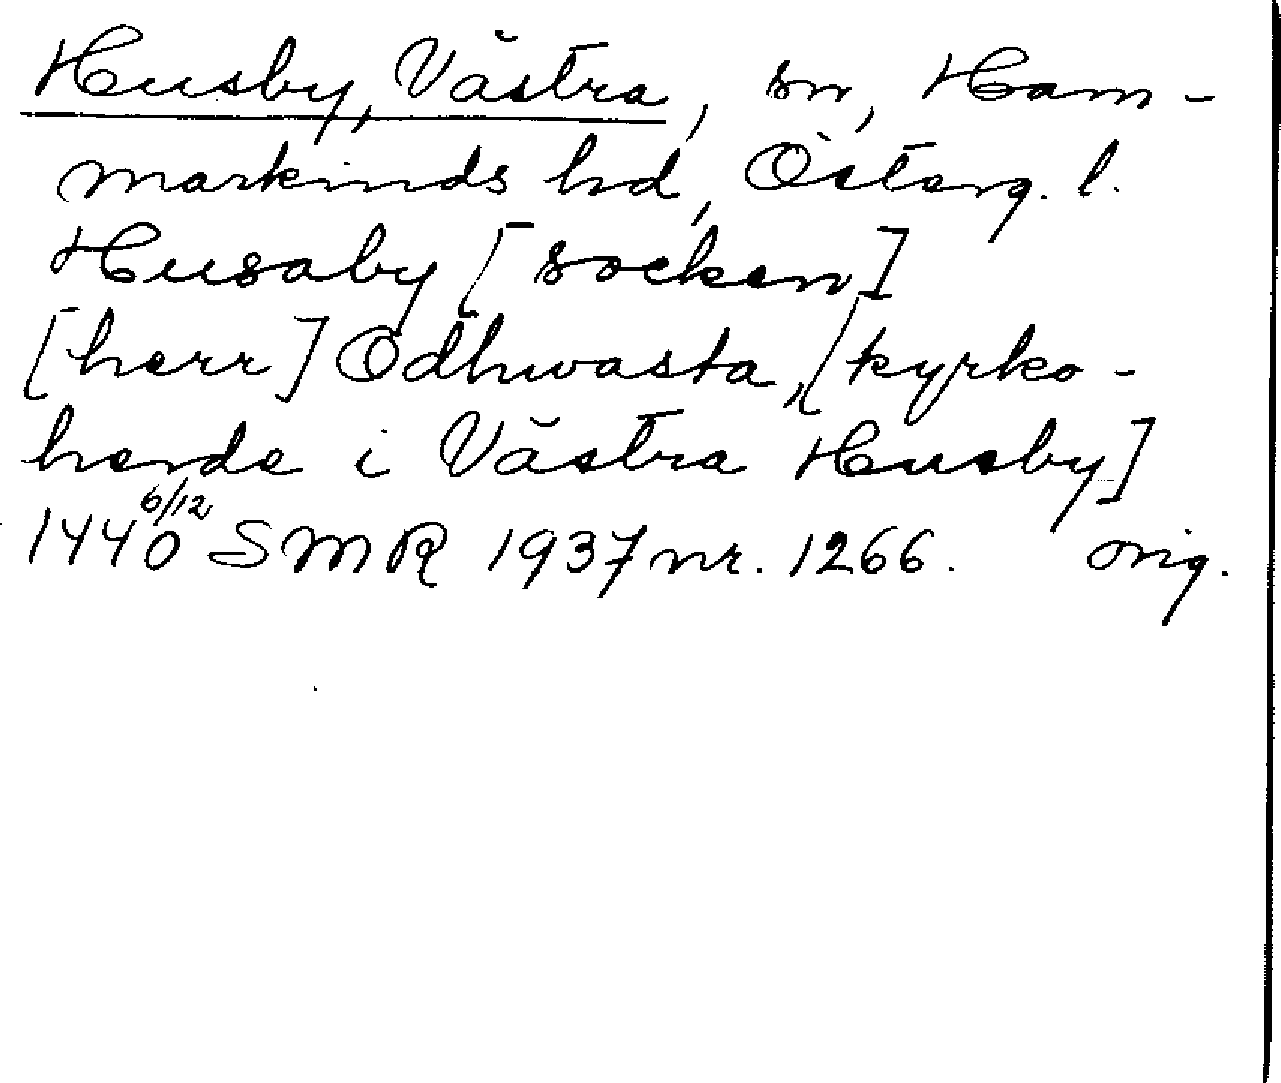 Husby, Västra, sn, Ham-
markinds hd, Österg. l.
Husaby [socken]
[herr] Ödhwasta, [kyrko-
herde i Västra Husby]
1440 6/12 SMR 1937 nr. 1266. orig.